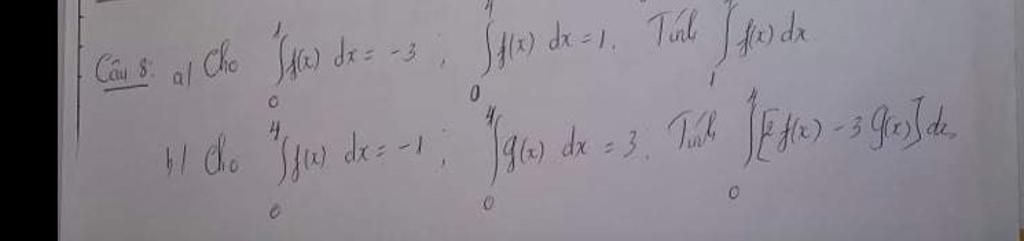 Câu 8: a/ Cho ∫₀¹ f(x) dx = -3 ; ∫₀⁴ f(x) dx = 1. Tính ∫₁ f(x) dx
b/ Cho ∫₀⁴ f(x) dx = -1 ; ∫₀⁴ g(x) dx = 3. Tính ∫₀⁴ [2 f(x) - 3 g(x)] dx.